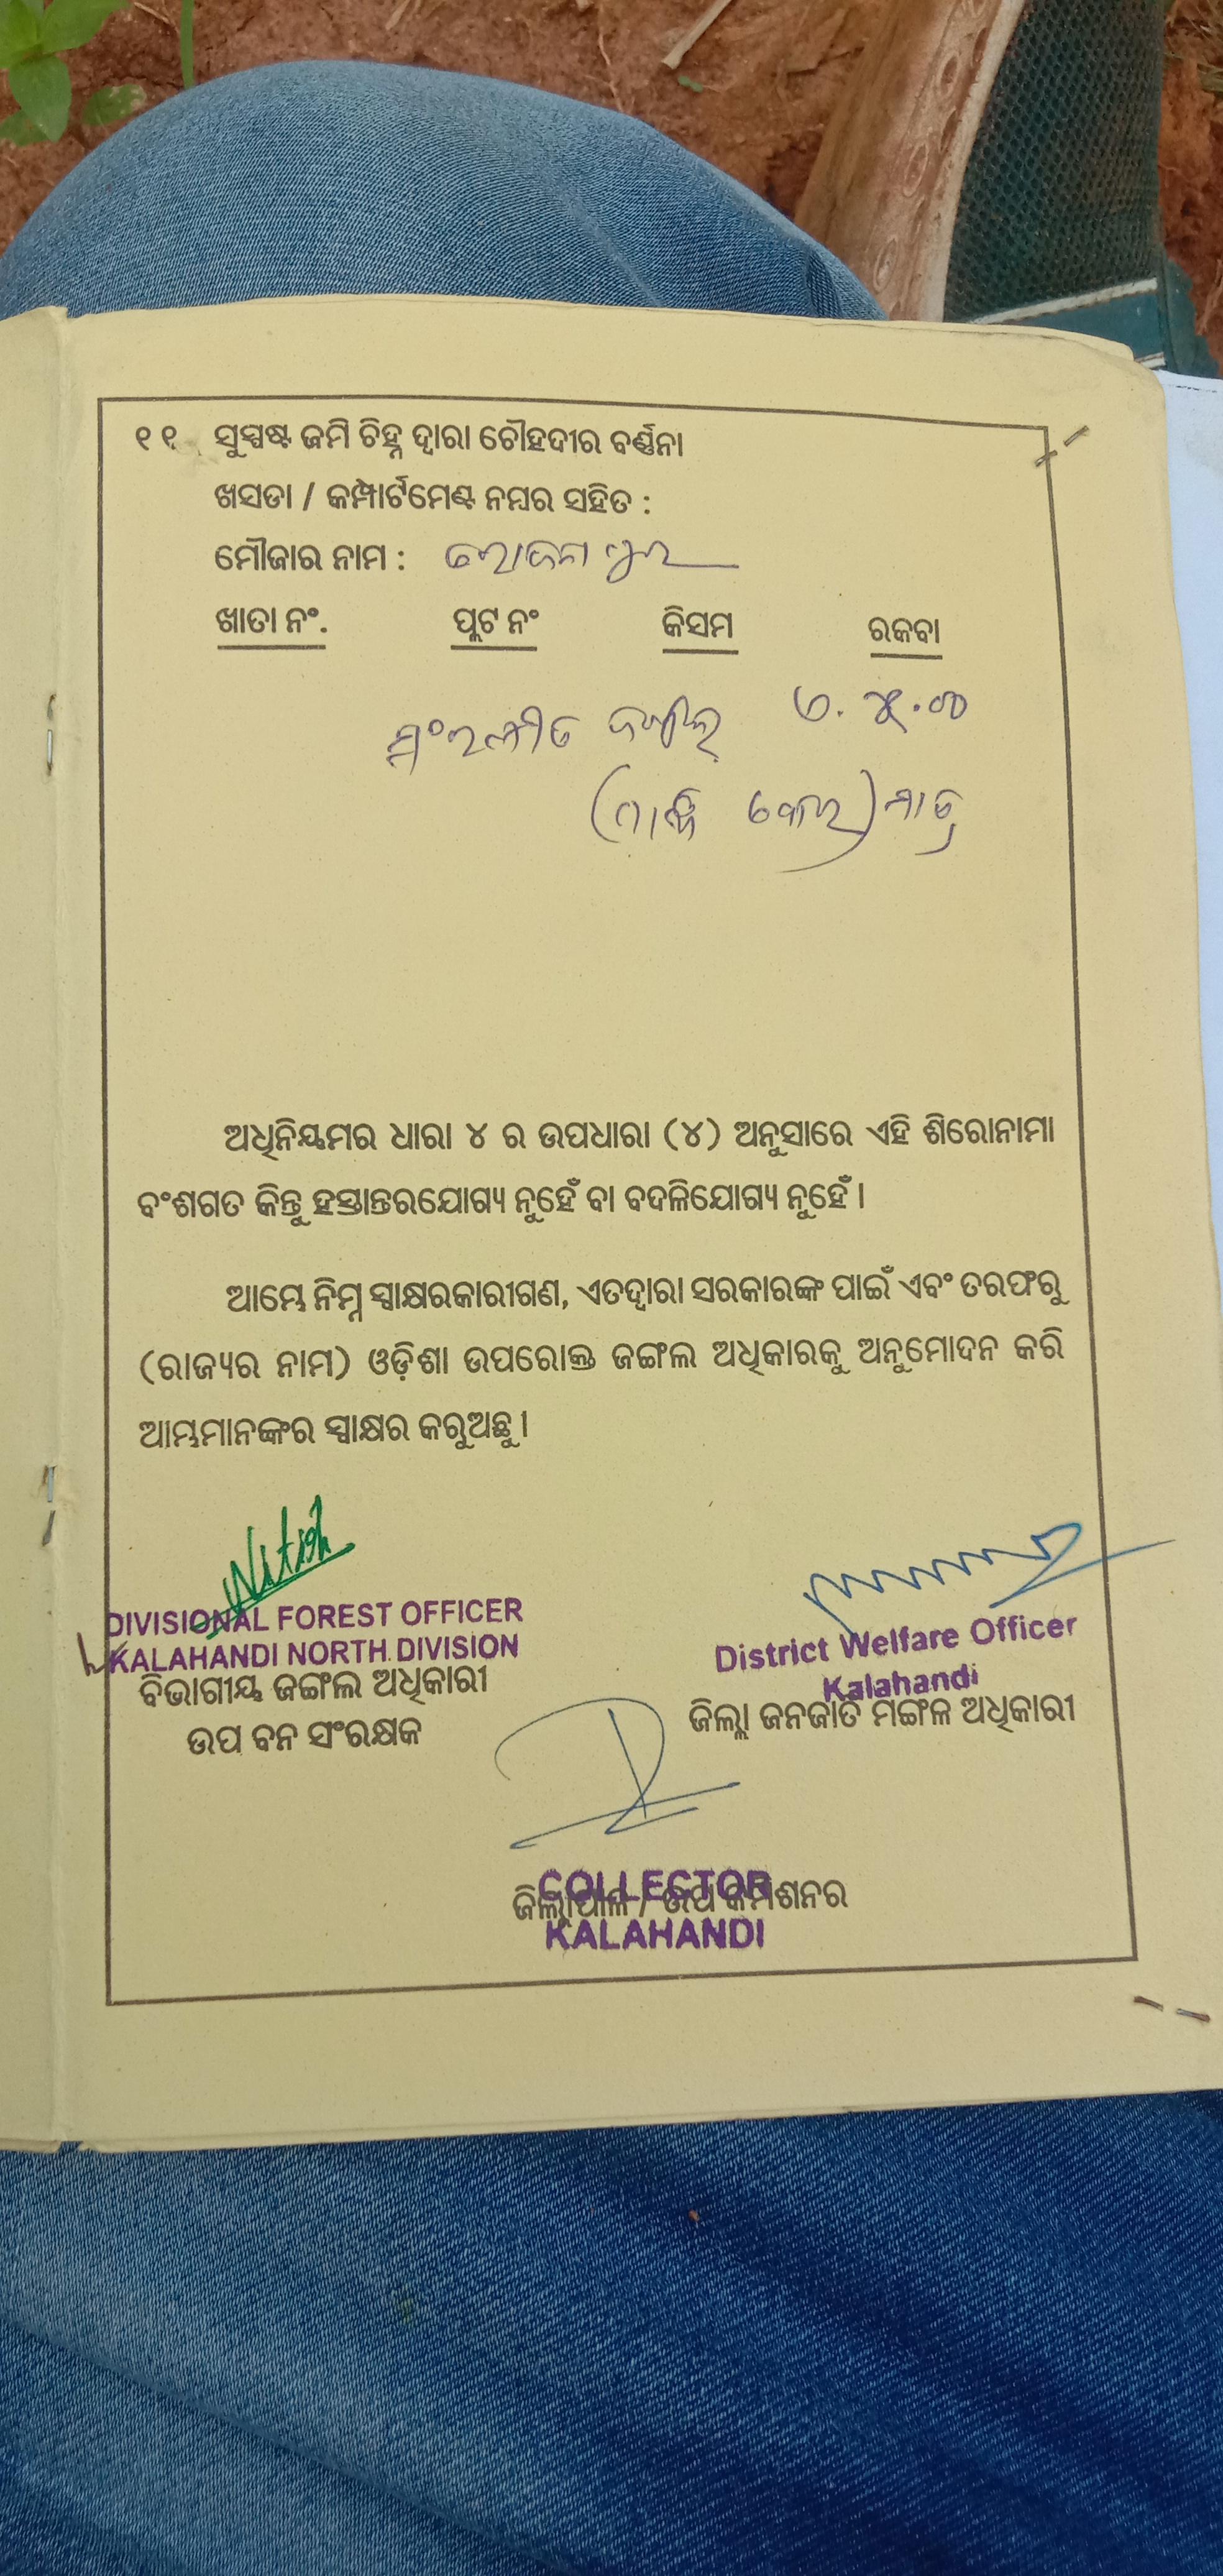 ୧୧ ସୁସ୍ପଷ୍ଟ ଜମି ଚିହ୍ନ ଦ୍ୱାରା ଚୌହଦୀର ବର୍ଣ୍ଣନା
ଖସଡା / କମ୍ପାର୍ଟମେଣ୍ଟ ନମ୍ବର ସହିତ :
ମୌଜାର ନାମ :
ଖାତା ନଂ. ପ୍ଲଟ ନଂ କିସମ ରକବା
ସଂରକ୍ଷିତ ଜଙ୍ଗଲ
ମାତ୍ର
ଅଧିନିୟମର ଧାରା ୪ ର ଉପଧାରା (୪) ଅନୁସାରେ ଏହି ଶିରୋନାମା
ବଂଶଗତ କିନ୍ତୁ ହସ୍ତାନ୍ତରଯୋଗ୍ୟ ନୁହେଁ ବା ବଦଳିଯୋଗ୍ୟ ନୁହେଁ ।
ଆମ୍ଭେ ନିମ୍ନ ସ୍ୱାକ୍ଷରକାରୀଗଣ, ଏତଦ୍ୱାରା ସରକାରଙ୍କ ପାଇଁ ଏବଂ ତରଫରୁ
(ରାଜ୍ୟର ନାମ) ଓଡ଼ିଶା ଉପରୋକ୍ତ ଜଙ୍ଗଲ ଅଧିକାରକୁ ଅନୁମୋଦନ କରି
ଆମ୍ଭମାନଙ୍କର ସ୍ୱାକ୍ଷର କରୁଅଛୁ ।
Nitish
DIVISIONAL FOREST OFFICER
KALAHANDI NORTH DIVISION
ବିଭାଗୀୟ ଜଙ୍ଗଲ ଅଧିକାରୀ
ଉପ ବନ ସଂରକ୍ଷକ
District Welfare Officer
Kalahandi
ଜିଲ୍ଲା ଜନଜାତି ମଙ୍ଗଳ ଅଧିକାରୀ
COLLECTOR
ଜିଲ୍ଲାପାଳ / ଉପ କମିଶନର
KALAHANDI